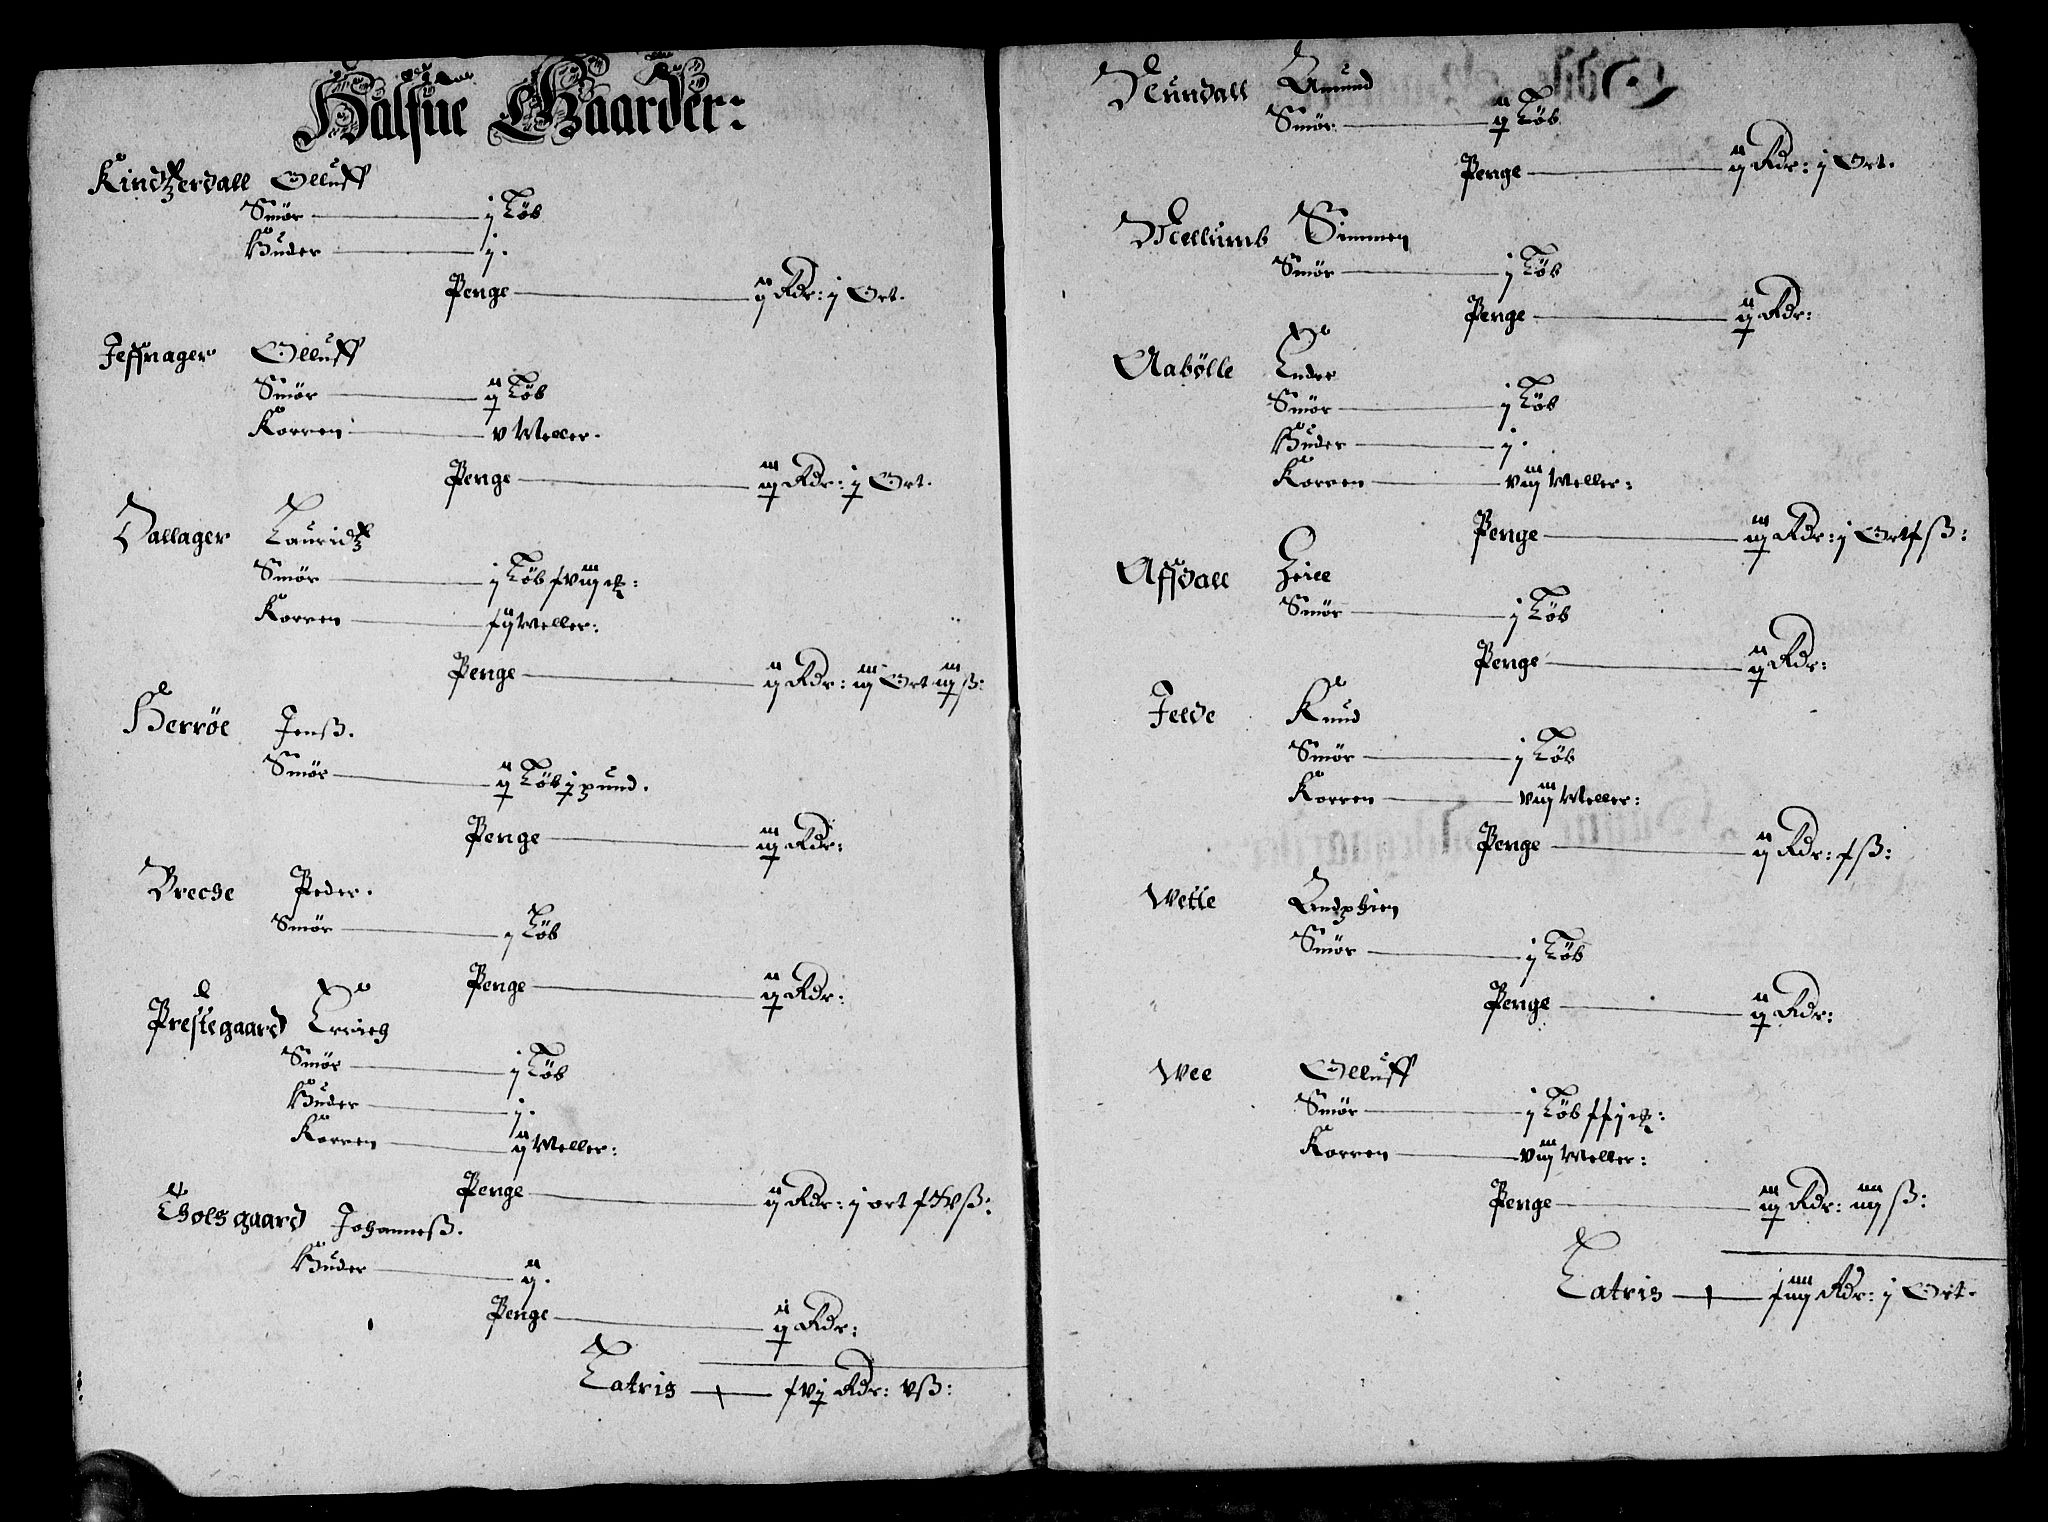 Halfue Gaarder:
Kindtzerdall Olluff
Smör j Löb
Huder j.
Penge ij Rdr: j Ort.
Jeffnager Olluff
Smör ij Löb
Korren v Meller.
Penge iij Rdr: j Ort.
Dallager Lauridtz
Smör j Löb xviij
Korren xij Meller:
Penge ij Rdr: iij Ort iiij ß:
Herröe Jenß.
Smör ij Löb j pund.
Penge iij Rdr:
Breche Peder.
Smör j Löb
Penge ij Rdr:
Prestegaard Errich
Smör j Löb
Huder j.
Korren ij Meller:
Penge ij Rdr: j ort
Tholsgaard Johanneß.
Huder ij.
Penge ij Rdr:
Latris xvj Rdr: v ß:
Nundall Amund
Smör ij Löb
Penge ij Rdr: j Ort.
Mellumb Simmen
Smör j Löb
Penge ij Rdr:
Aabölle Endre
Smör j Löb
Huder j.
Korren viij Meller:
Penge iij Rdr: j Ort x ß:
Affdall
Smör j Löb
Penge ij Rdr:
Jelde Knud
Smör j Löb
Korren viij Meller:
Penge ij Rdr: x ß:
Wette
Smör j Löb
Penge ij Rdr:
Wee Olluff
Smör j Löb xxj
Korren viij Meller:
Penge iij Rdr: iiij ß:
Latris Rdr: j Ort.